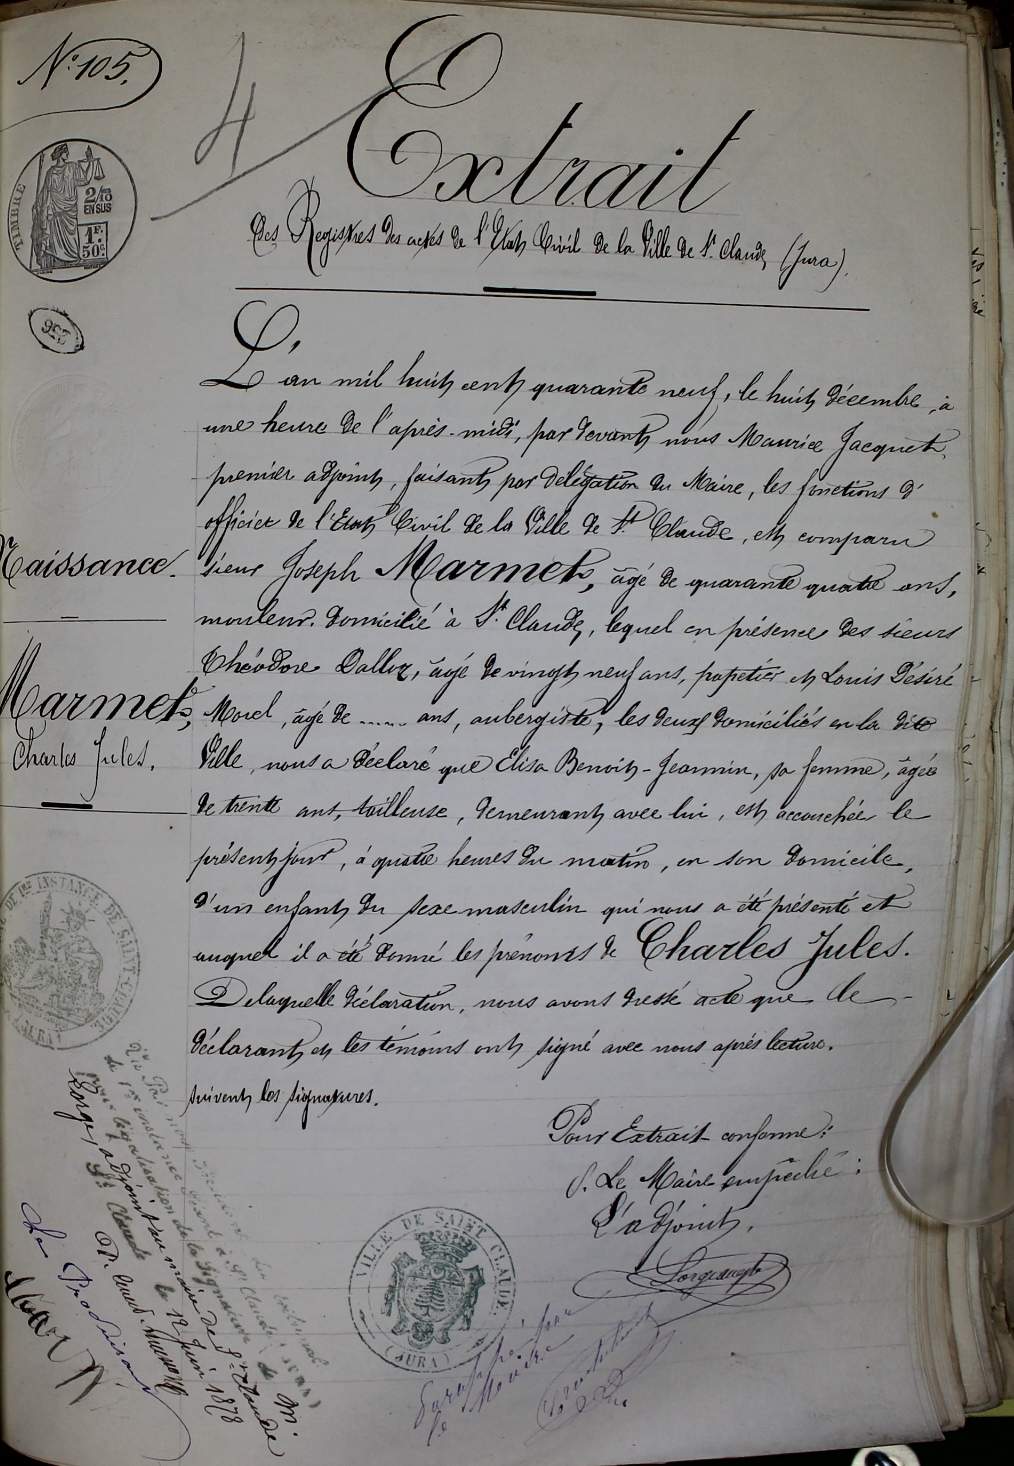 N°. 105.
4
Extrait
TIMBRE
2/10
EN SUS
1F.
50c.
Des Registres des actes de l'Etat Civil de la Ville de St. Claude (Jura).
936
L'an mil huit cent quarante neuf, le huit décembre, à
une heure de l'après-midi, par devant nous Maurice Jacquet,
premier adjoint, faisant par délégation du Maire, les fonctions d'
officier de l'Etat Civil de la Ville de St. Claude, est comparu
Naissance.
sieur Joseph Marmet, âgé de quarante quatre ans,
mouleur. domicilié à St. Claude, lequel en présence des sieurs
Théodore Dalloz, âgé de vingt neuf ans, papetier et Louis Désiré
Marmet,
Morel, âgé de ...... ans, aubergiste, les deux domiciliés en la dite
Charles Jules.
Ville, nous a déclaré que Elisa Benoit-Jeannin, sa femme, âgée
de trente ans, tailleuse, demeurant avec lui, est accouchée le
présent jour, à quatre heures du matin, en son domicile,
d'un enfant du sexe masculin qui nous a été présenté et
auquel il a été donné les prénoms de Charles Jules.
De laquelle déclaration, nous avons dressé acte que le
déclarant et les témoins ont signé avec nous après lecture.
suivent les signatures.
DE 1RE INSTANCE DE SAINT-CLAUDE
(JURA)
Pour Extrait conforme:
p. Le Maire empêché:
L'adjoint,
VILLE DE SAINT CLAUDE
(JURA)
Vu Par nous
de 1re instance séant à St Claude (Jura)
pour légalisation de la signature de M.
adjoint au maire de St Claude
St Claude le 12 Juin 1878